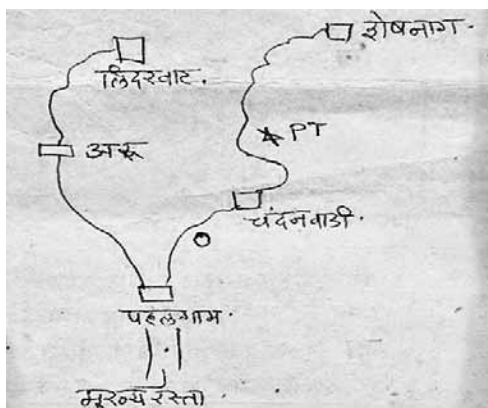 शेषनाग.
लिदरवाट.
PT
अरू
चंदनवाडी.
पहलगाम.
मूख्य रस्ता